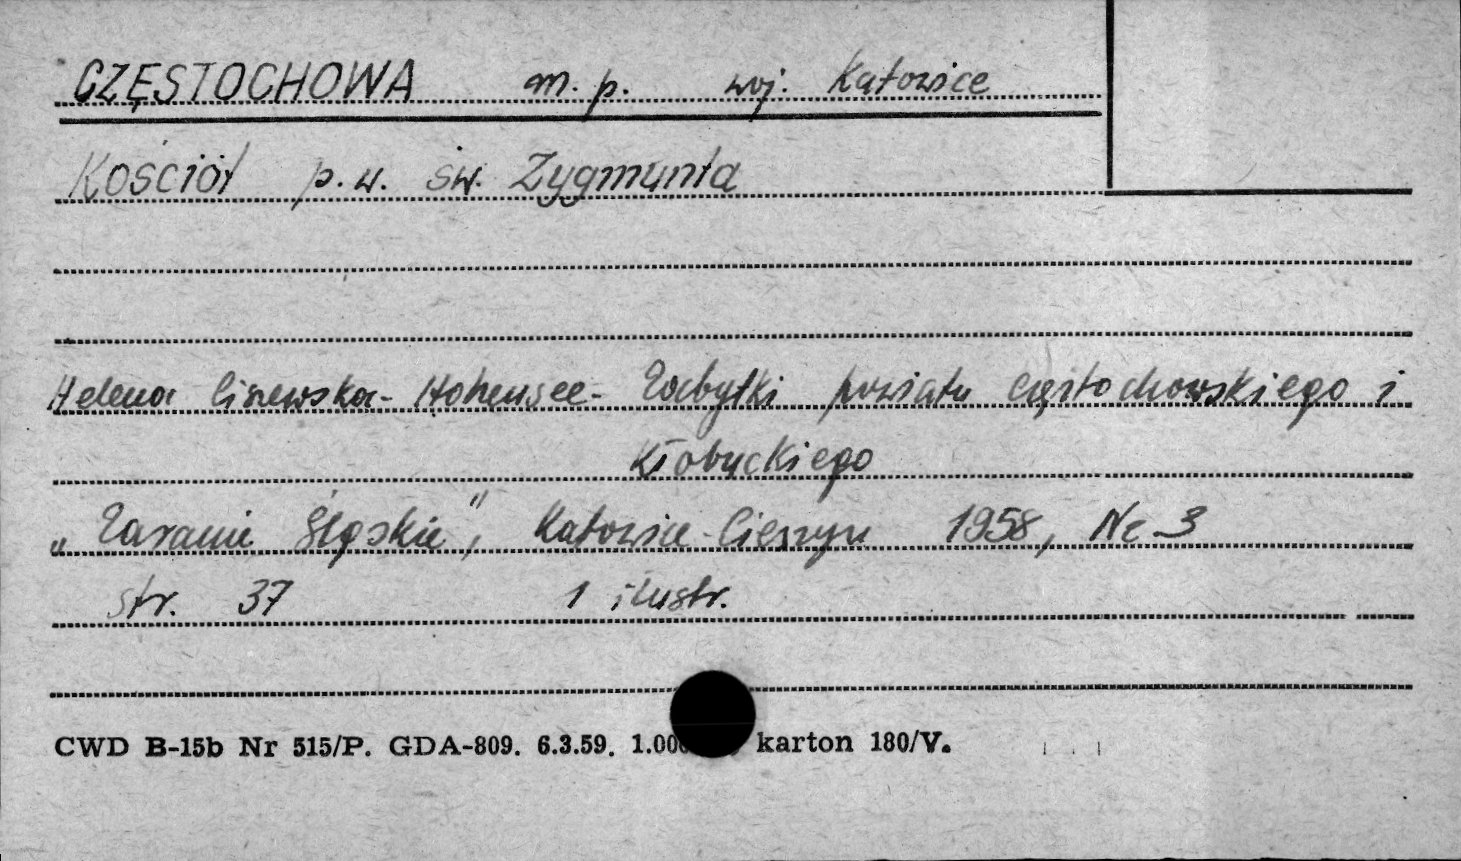 CZĘSTOCHOWA m. p. woj. Katowice
Kościół p. w. św. Zygmunta
Helena Liszewska- Hohensee- Zabytki powiatu częstochowskiego i
Kłobuckiego
„Zaranie Śląskie”, Katowice-Cieszyn 1958, Nr 3
str. 37 1 ilustr.
CWD B-15b Nr 515/P. GDA-809. 6.3.59. karton 180/V.